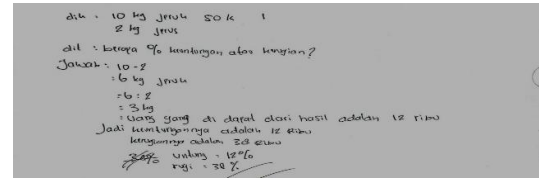 dik : 10 kg jeruk 50 k 1
2 kg jerus
dit : berapa % keuntungan atau kerugian?
Jawab : 10 - 2
: 6 kg jeruk
= 6 : 2
= 3 kg
: Uang yang di dapat dari hasil adalah 12 ribu
Jadi keuntungannya adalah 12 Ribu
kerugiannya adalah 38 ribu
untung = 12%
rugi = 38 %